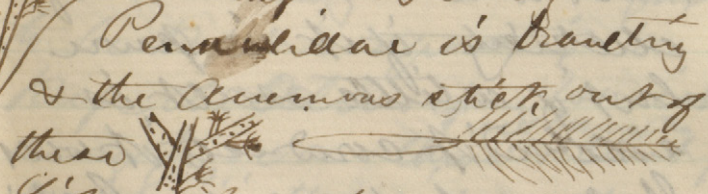 Pennatulidae is branching
& the Anemones stick out of
these